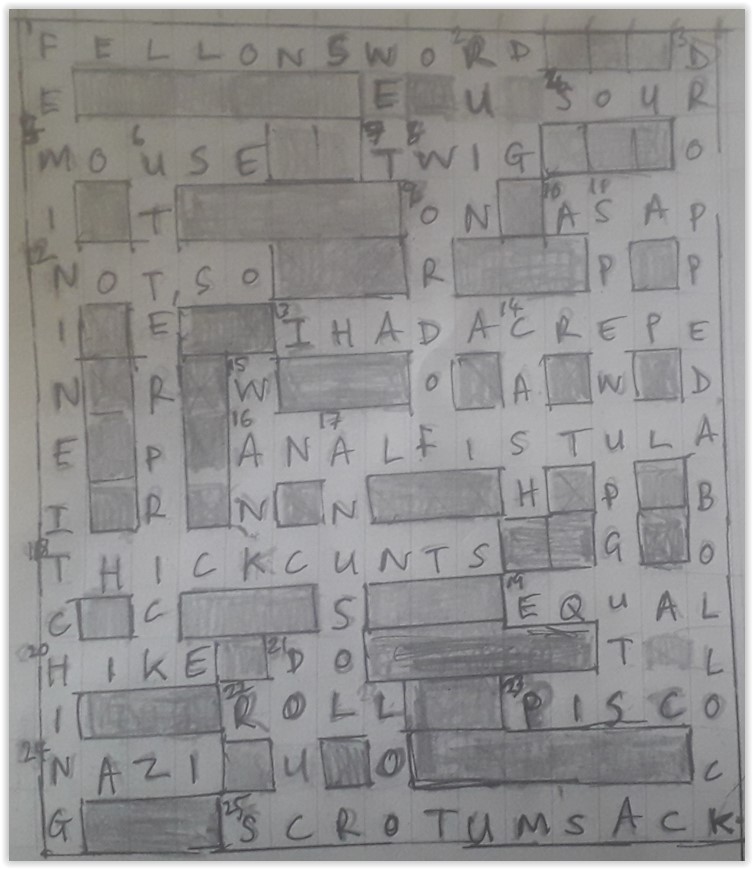 F E L L O N S W O 2 R D 3 D
E E U S O U R
5 M O 6 U S E 7 T 8 W I G O
I T 9 O N 10 A 11 S A P
12 N O T, S O R P P
I E 13 I H A D A 14 C R E P E
N R 15 W O A W D
E P 16 A N 17 A L F I S T U L A
I R N N H P B
18 T H I C K C U N T S G O
C C S 19 E Q U A L
20 H I K E 21 D O T L
I 22 R O L L 23 P I S C O
24 N A Z I U O C
G 25 S C R O T U M S A C K